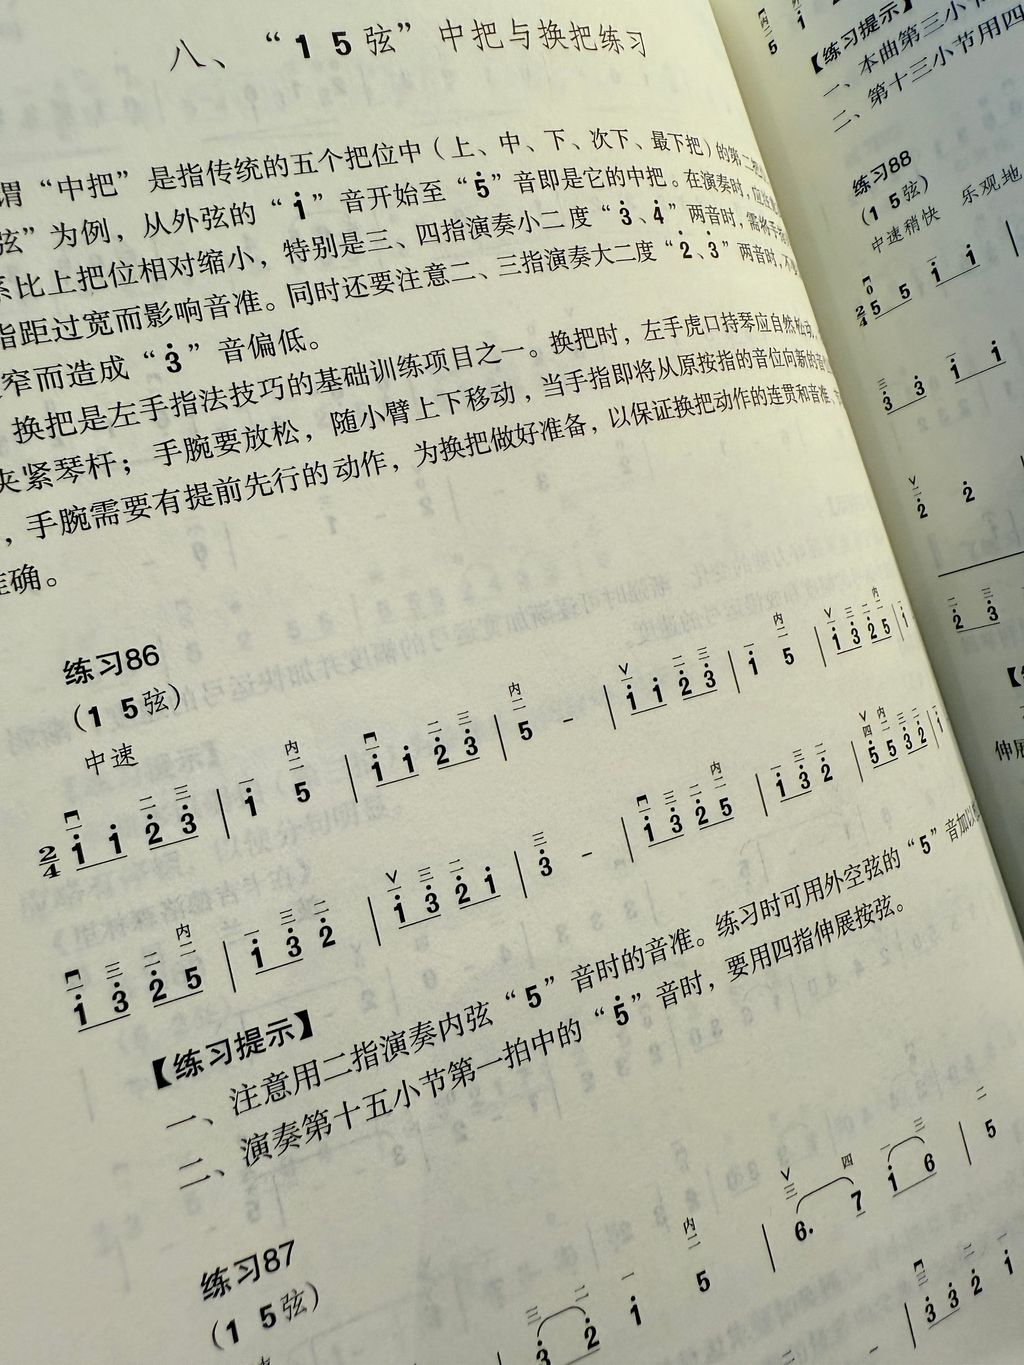 八、“1 5弦”中把与换把练习
谓“中把”是指传统的五个把位中（上、中、下、次下、最下把）的第二
弦”为例，从外弦的“i”音开始至“5̇”音即是它的中把。在演奏时，应
系比上把位相对缩小，特别是三、四指演奏小二度“3̇、4̇”两音时，需将
指距过宽而影响音准。同时还要注意二、三指演奏大二度“2̇、3̇”两音时，不
窄而造成“3̇”音偏低。
换把是左手指法技巧的基础训练项目之一。换把时，左手虎口持琴应自然松动，
夹紧琴杆；手腕要放松，随小臂上下移动，当手指即将从原按指的音位向新的音
，手腕需要有提前先行的动作，为换把做好准备，以保证换把动作的连贯和音准、
准确。
练习86
（1 5弦）
中速
2/4 i i 2̇ 3̇ | i 5 | i i 2̇ 3̇ | 5 - | i i 2̇ 3̇ | i 5 | i 3̇ 2̇ 5 |
i 3̇ 2̇ 5 | i 3̇ 2̇ | i 3̇ 2̇ i | 3̇ - | i 3̇ 2̇ 5 | i 3̇ 2̇ | 5̇ 5̇ 3̇ 2̇ | i
【练习提示】
一、注意用二指演奏内弦“5”音时的音准。练习时可用外空弦的“5”音加以
二、演奏第十五小节第一拍中的“5̇”音时，要用四指伸展按弦。
练习87
（1 5弦）
3̇ 2̇ i 5 | 6. 7 i 6 | 5
3̇ 3̇ 2̇ i
【练习提示】
一、本曲第三小节
二、第十三小节用四
练习88
（1 5弦）
中速稍快 乐观地
2/4 5 5 i i |
3̇ 3̇ i i
2̇ 2̇
2̇ 3̇
伸展